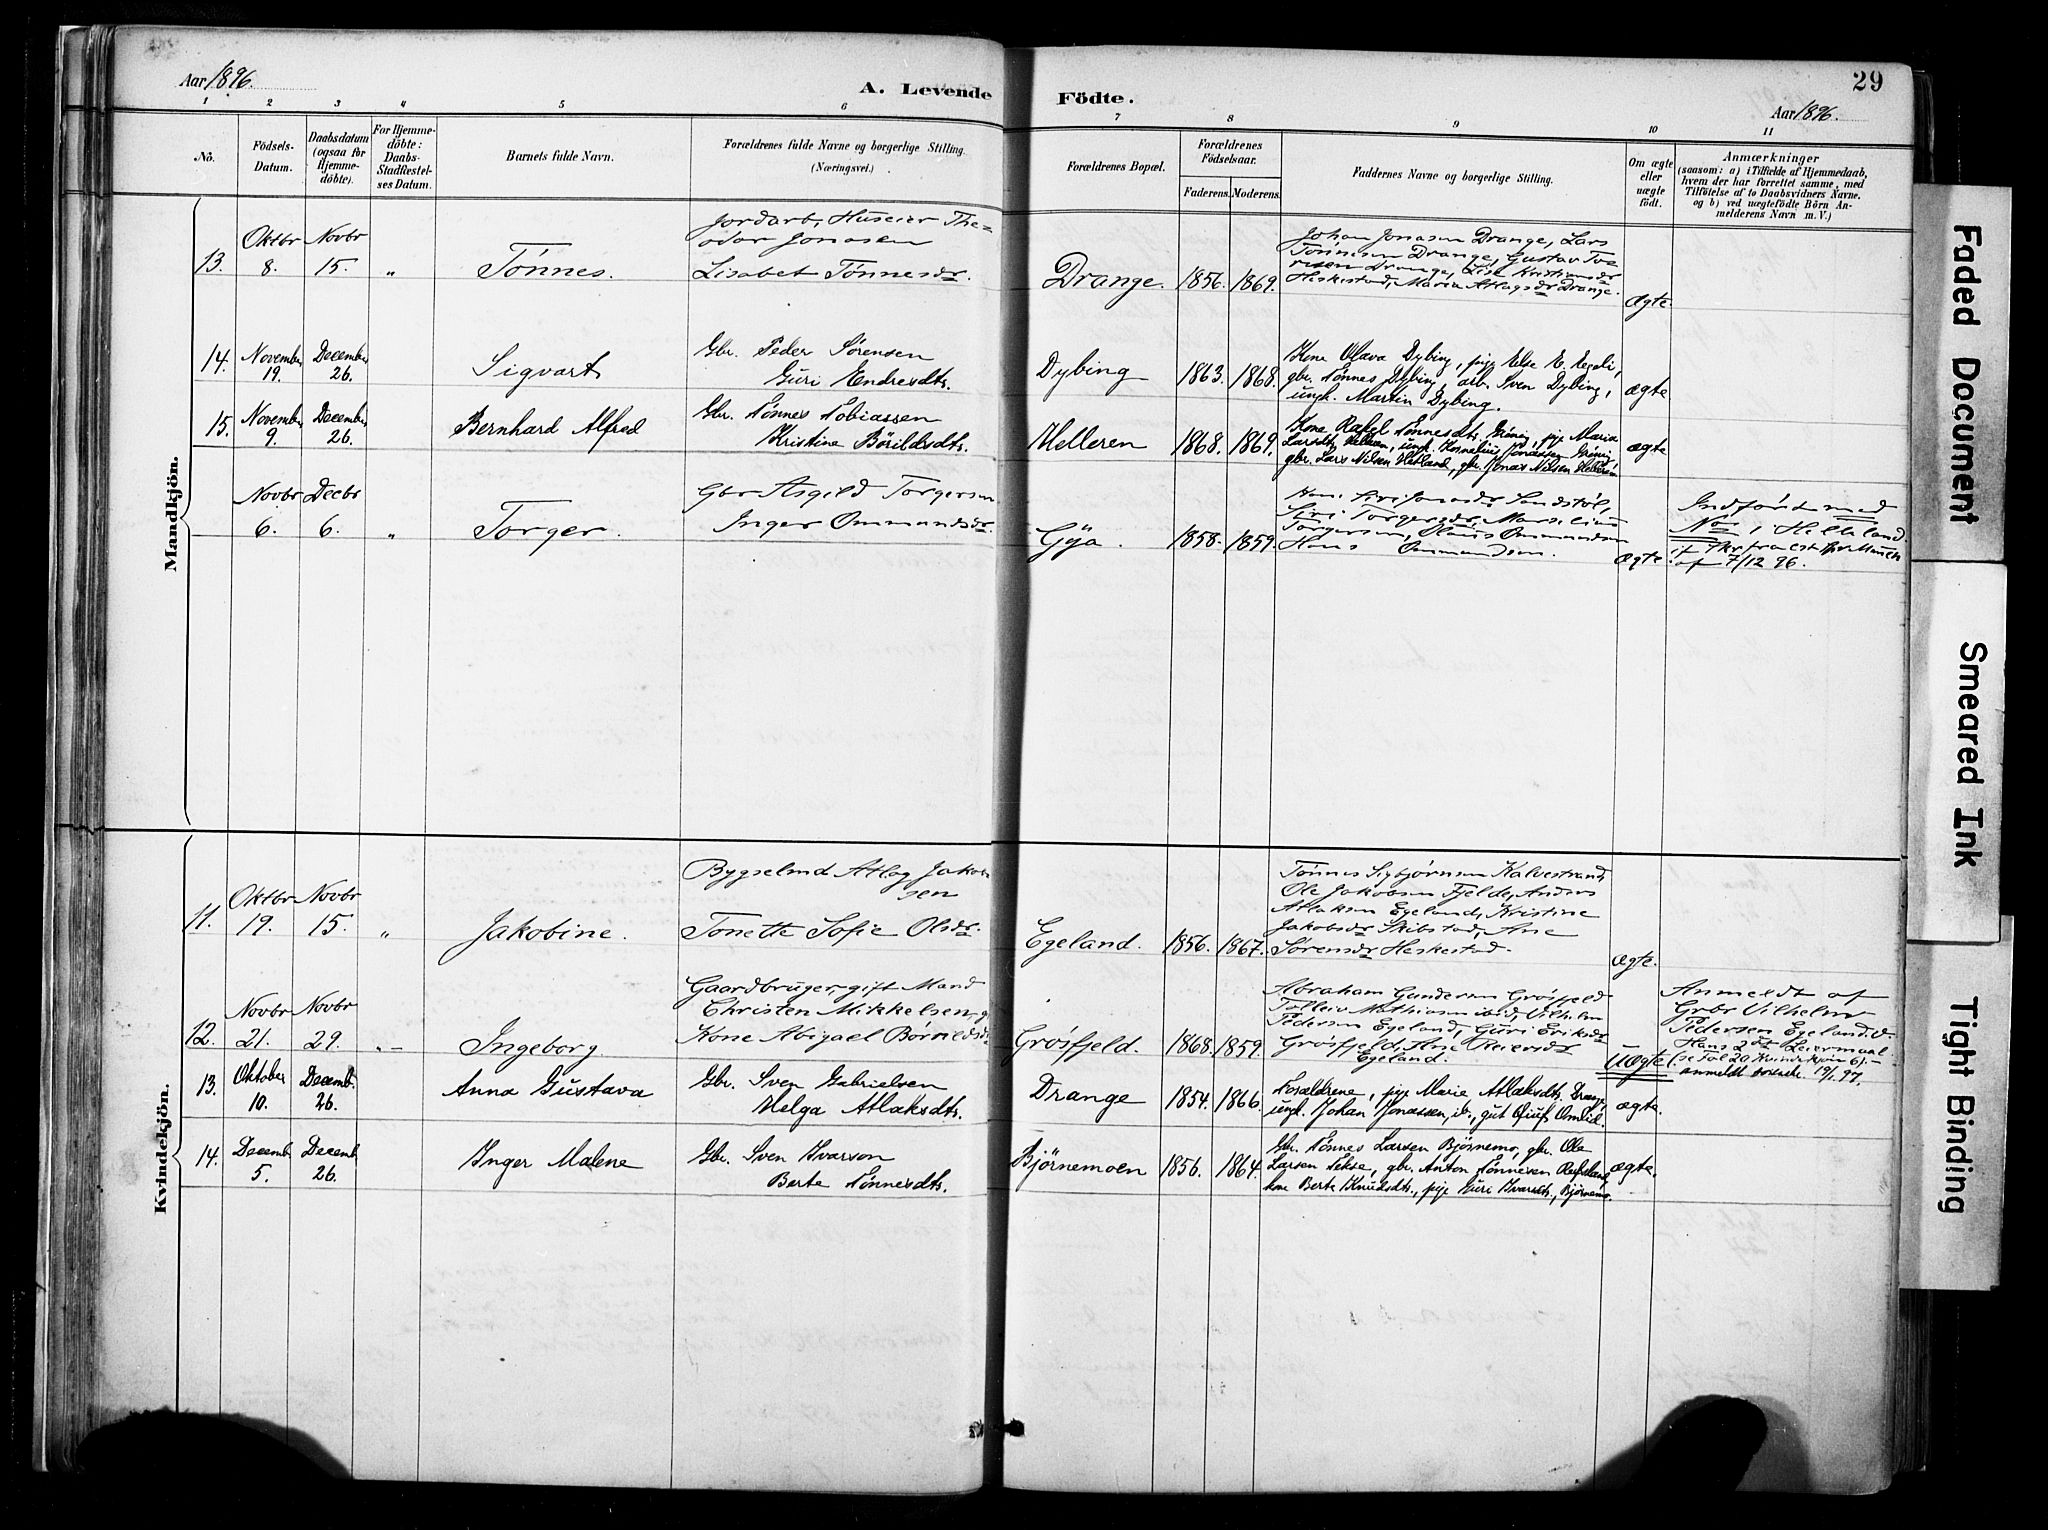 Aar 1896.
A. Levende Födte.
Aar 1896.
29
1 2 3 4 5 6 7 8 9 10 11
No.
Födsels-
Datum.
Daabsdatum
(ogsaa for
Hjemme-
döbte).
For Hjemme-
döbte:
Daabs-
Stadfestel-
ses Datum.
Barnets fulde Navn.
Forældrenes fulde Navne og borgerlige Stilling.
(Næringsvei.)
Forældrenes Bopæl.
Forældrenes
Födselsaar.
Faderens. Moderens.
Faddernes Navne og borgerlige Stilling.
Om ægte
eller
uægte
födt.
Anmærkninger
(saasom: a) i Tilfælde af Hjemmedaab,
hvem der har forrettet samme, med
Tilföielse af to Daabsvidners Navne.
og b) ved uægtefödte Börn An-
melderens Navn m. V.)
Mandkjön.
13. Oktbr 8. Novbr 15. „ Tönnes.
Jordarb, Huseier The=
odor Jonasen
Lisabet Tönnesdr.
Drange. 1856. 1869.
Johan Jonasen Drange, Lars
Tönnesen Drange, Gustav Tor
resen Drange, Lise Kristiansdr
Heskestad, Maria Atlagsdr Drange.
ægte.
14. November 19. December 26. Sigvart
Gbr. Peder Sörensen
Guri Endresdtr.
Dybing 1863. 1868.
Kone Olava Dybing, pige Else E. Egeli,
gbr. Tönnes Dybing, arb. Sven Dybing,
ungk. Martin Dybing.
ægte
15. November 9. December 26. Bernhard Alfred
Gbr. Tönnes Tobiassen
Kristine Börildsdtr.
Helleren 1868. 1869.
Kone Rakel Tönnesdtr. pige Maria
Larsdtr. Helleren, ungk. Kornelius Jonassen
gbr. Lars Nilsen Hetland, gbr. Jonas Nilsen
ægte
Novbr 6. Decbr 6. „ Torger.
Gbr Asgild Torgersen
Inger Ommundsdr.
Gya. 1858. 1859.
Kone Siri Jonasdr Sandstöl,
Siri Torgersdr, Marselius
Torgersen, Ommundsen
Hans Ommundsen.
ægte
Indförd med
Nor i Helleland.
af 7/12 96.
Kvindekjön.
11. Oktbr 19. Novbr 15. „ Jakobine.
Bygselmd Atlag Jakob
sen
Tonette Sofie Olsdr.
Egeland. 1856. 1867.
Tönnes Sigbjörnsen Kalvestrand,
Ole Jakobsen Fjelde, Anders
Atlaksen Egeland, Kristine
Jakobsdr Skibstad, Ane
Sörensdr Heskestad.
ægte.
12. Novbr 21. Novbr 29. „ Ingeborg.
Gaardbruger, gift Mand
Christen Mikkelsen,
Kone Abigael Börildsdr
Grösfjeld. 1868. 1859.
Abraham Gundersen Grösfjeld
Tolleiv Mathiasen ibid, Vilhelm
Pedersen Egeland, Guri Eriksdr
Grösfjeld, Ane Reiersdr
Egeland.
uægte
Anmeldt af
Grbr Vilhelm
Pedersen Egeland.
Hans 2det Leiermaal
(se Fol 20 Kvindekjön 6).
anmeldt 19/1 97.
13. Oktober 10. Decemb. 26. Anna Gustava
Gbr. Sven Gabrielsen
Helga Atlaksdtr.
Drange 1854. 1866.
Forældrene, pige Marie Atlaksdtr. Drange,
ungk. Johan Jonassen, ib., gut Omlid.
ægte.
14. Decemb. 5. Decemb. 26. Inger Malene
Gbr. Sven Ivarson
Berte Tönnesdtr.
Björnemoen 1856. 1864.
Gbr. Tönnes Larsen Björnemo, gbr. Ole
Larsen Sekse, gbr. Anton Tönnesen
kone Berte Knudsdtr., pige Guri Ivarsdtr., Björnemo.
ægte.
Faded Document
Smeared Ink
Tight Binding